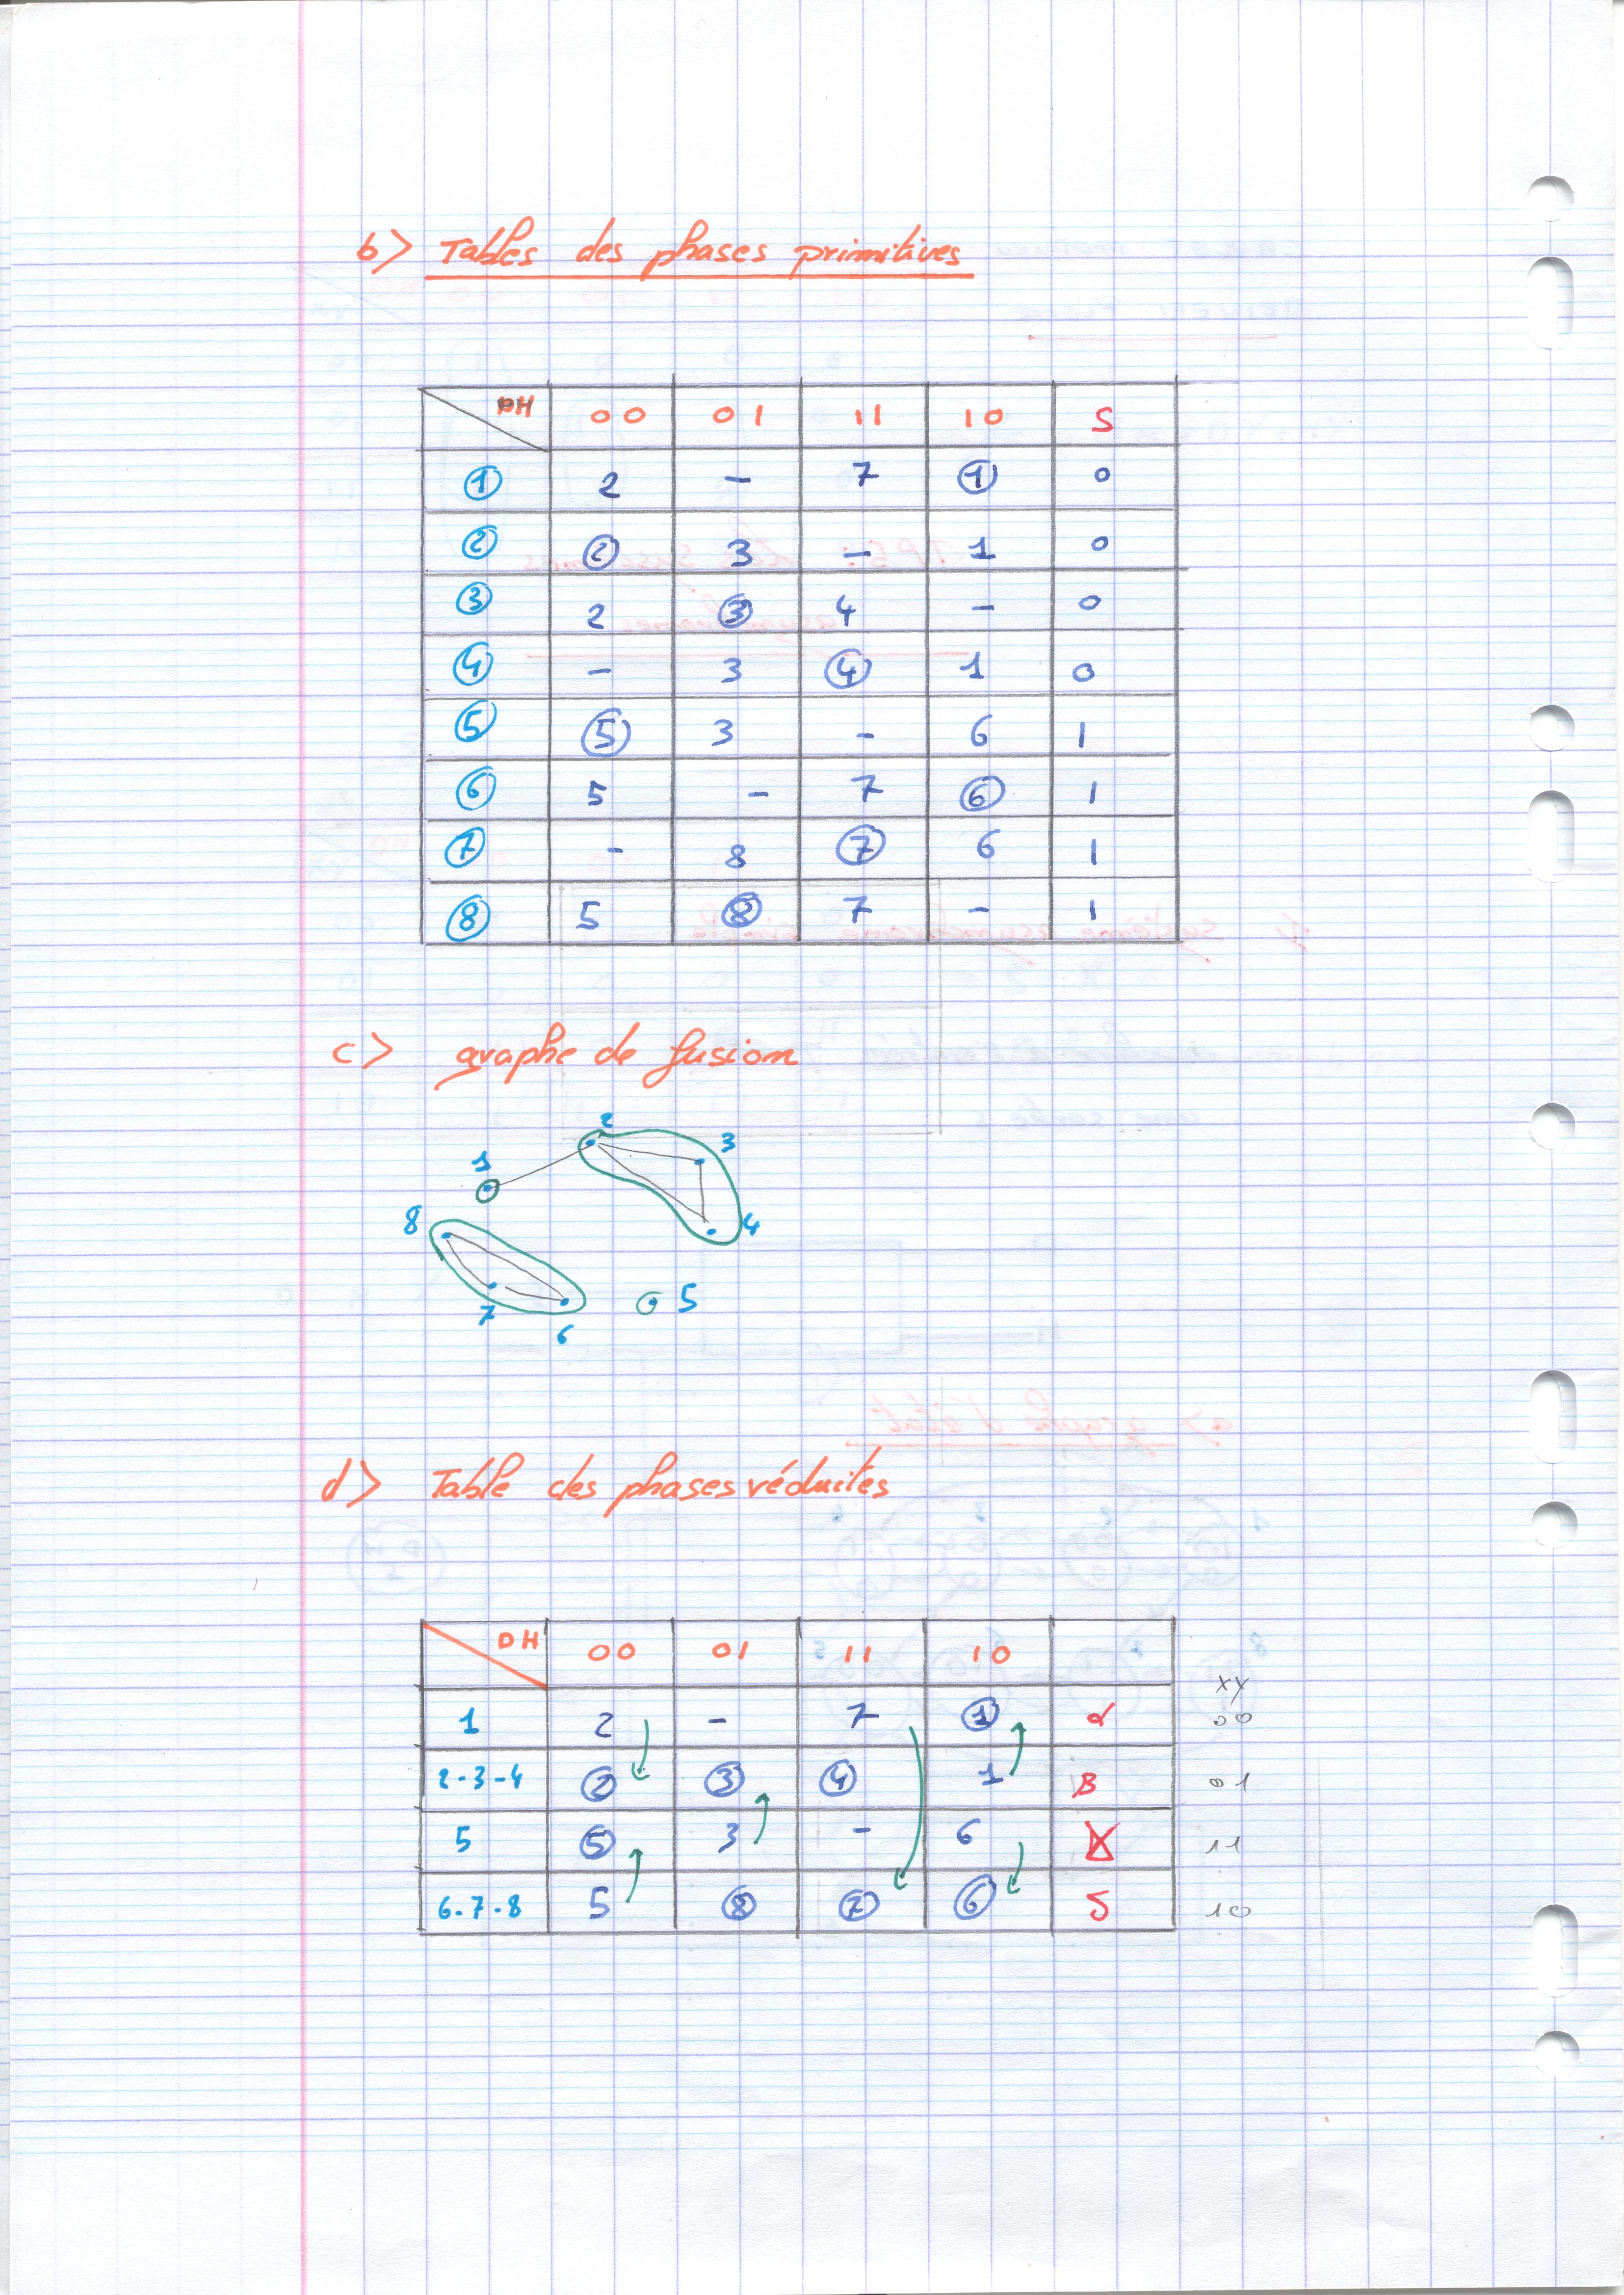 b> Tables des phases primitives
DH 00 01 11 10 S
1 2 - 7 1 0
2 2 3 - 1 0
3 2 3 4 - 0
4 - 3 4 1 0
5 5 3 - 6 1
6 5 - 7 6 1
7 - 8 7 6 1
8 5 8 7 - 1
c> graphe de fusion
2
1 3
8 4
7 5
6
d> Table des phases réduites
DH 00 01 11 10
xy
1 2 - 7 1 α 00
2-3-4 2 3 4 1 B 01
5 5 3 - 6 11
6.7.8 5 8 7 6 S 10